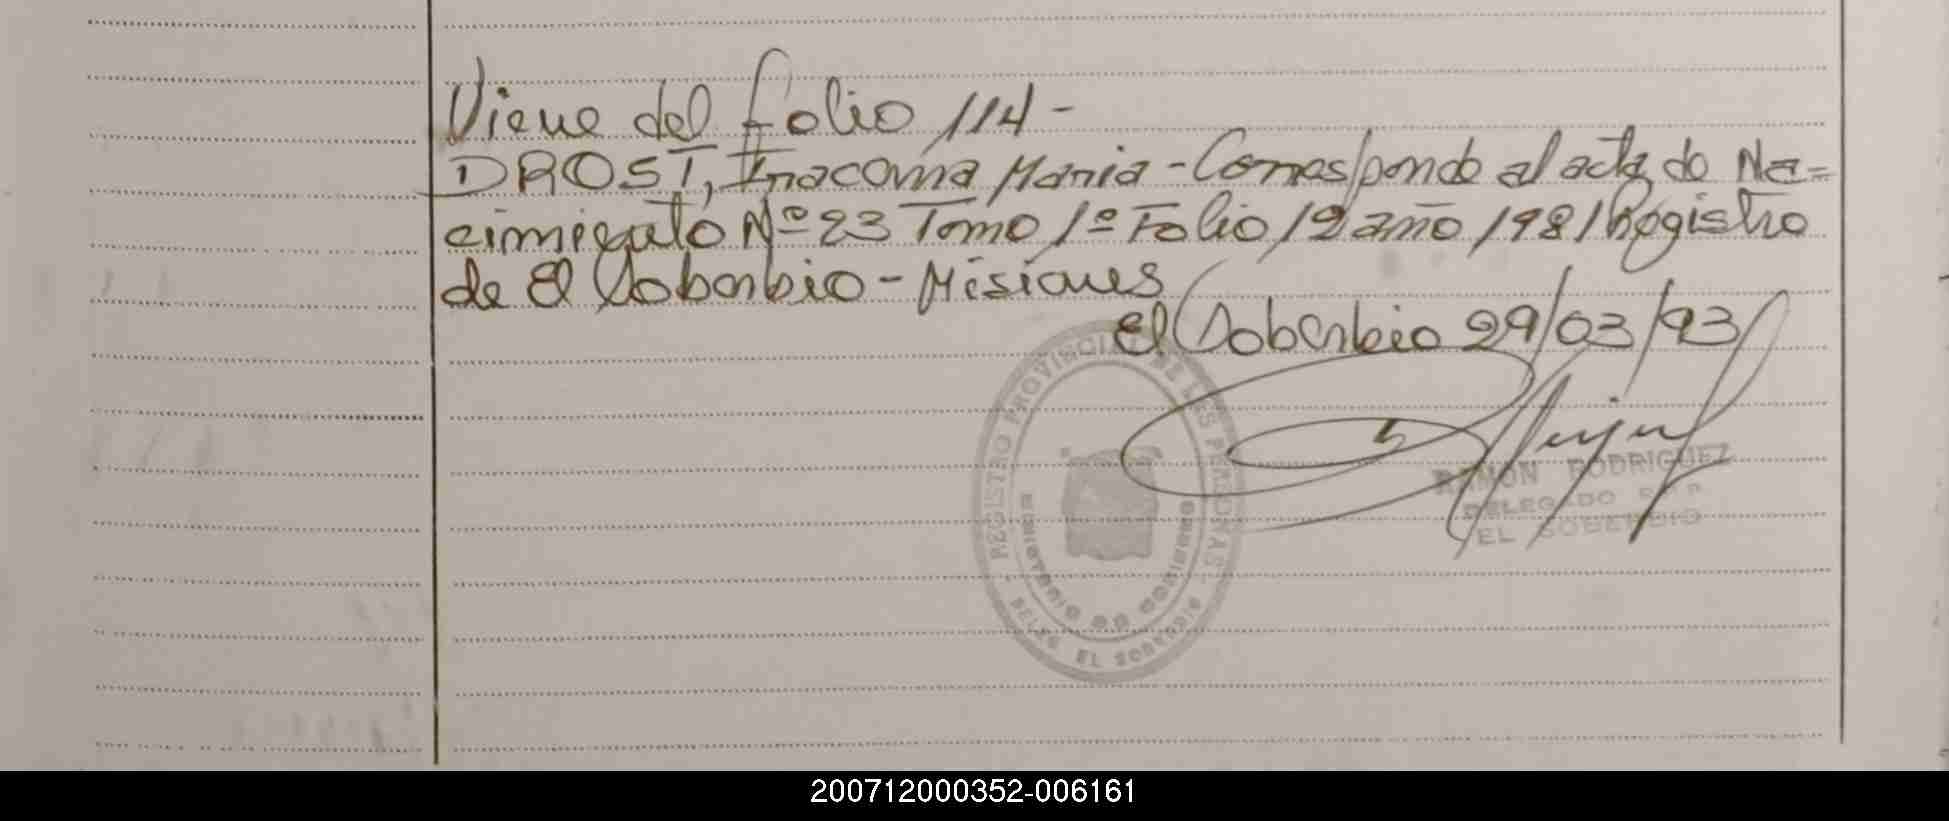 Viene del folio 114 -
DROST, Inacoma Maria - Corresponde al acta de Na=
cimiento Nº 23 Tomo 1º Folio 12 año 1981 Registro
de El Soberbio - Misiones
El Soberbio 29/03/93
REGISTRO PROVINCIAL DE LAS PERSONAS
MINISTERIO DE GOBIERNO
DELEG. EL SOBERBIO
RAMON RODRIGUEZ
DELEGADO R.P.P.
EL SOBERBIO
200712000352-006161